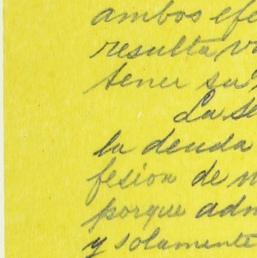 ambos efe
resulta v
tener su
La se
la deuda
fesion de m
porque adm
y solamente